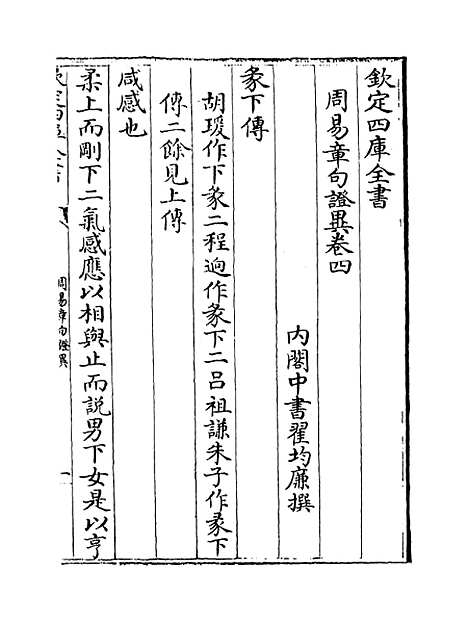 欽定四庫全書
周易章句證異卷四
内閣中書翟均廉撰
彖下傳
胡瑗作下彖二程迥作彖下二吕祖謙朱子作彖下
傳二餘見上傳
咸感也
柔上而剛下二氣感應以相與止而説男下女是以亨
周易章句證異